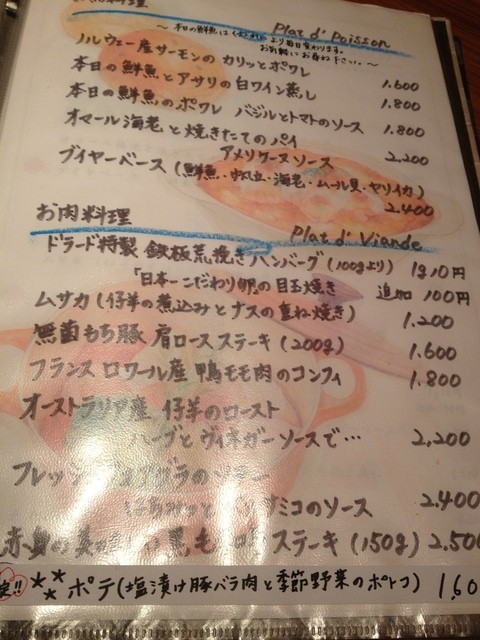 料理
Plat d' Poisson
～本日の鮮魚は より毎日変わります。
お気軽にお尋ね下さい。～
ノルウェー産サーモンの カリッとポワレ 1.600
本日の鮮魚とアサリの白ワイン蒸し 1.800
本日の鮮魚のポワレ バジルとトマトのソース 1.800
オマール海老と焼きたてのパイ
アメリケーヌソース 2,200
ブイヤーベース(鮮魚・帆立・海老・ムール貝・ヤリイカ)
2.400
お肉料理
Plat d' Viande
ドラード特製 鉄板荒挽きハンバーグ(100gより) 1210円
「日本一こだわり卵」の目玉焼き 追加 100円
ムサカ(仔羊の煮込みとナスの重ね焼き) 1.200
無菌もち豚 肩ロースステーキ(200g) 1.600
フランス ロワール産 鴨モモ肉のコンフィ 1.800
オーストラリア産 仔羊のロースト
ハーブとヴィネガーソースで… 2,200
フレッシュフォアグラのソテー
はちみつと ミコのソース 2.400
赤身の 黒毛 ステーキ(150g) 2.500
ポテ(塩漬け豚バラ肉と季節野菜のポトフ) 1,60